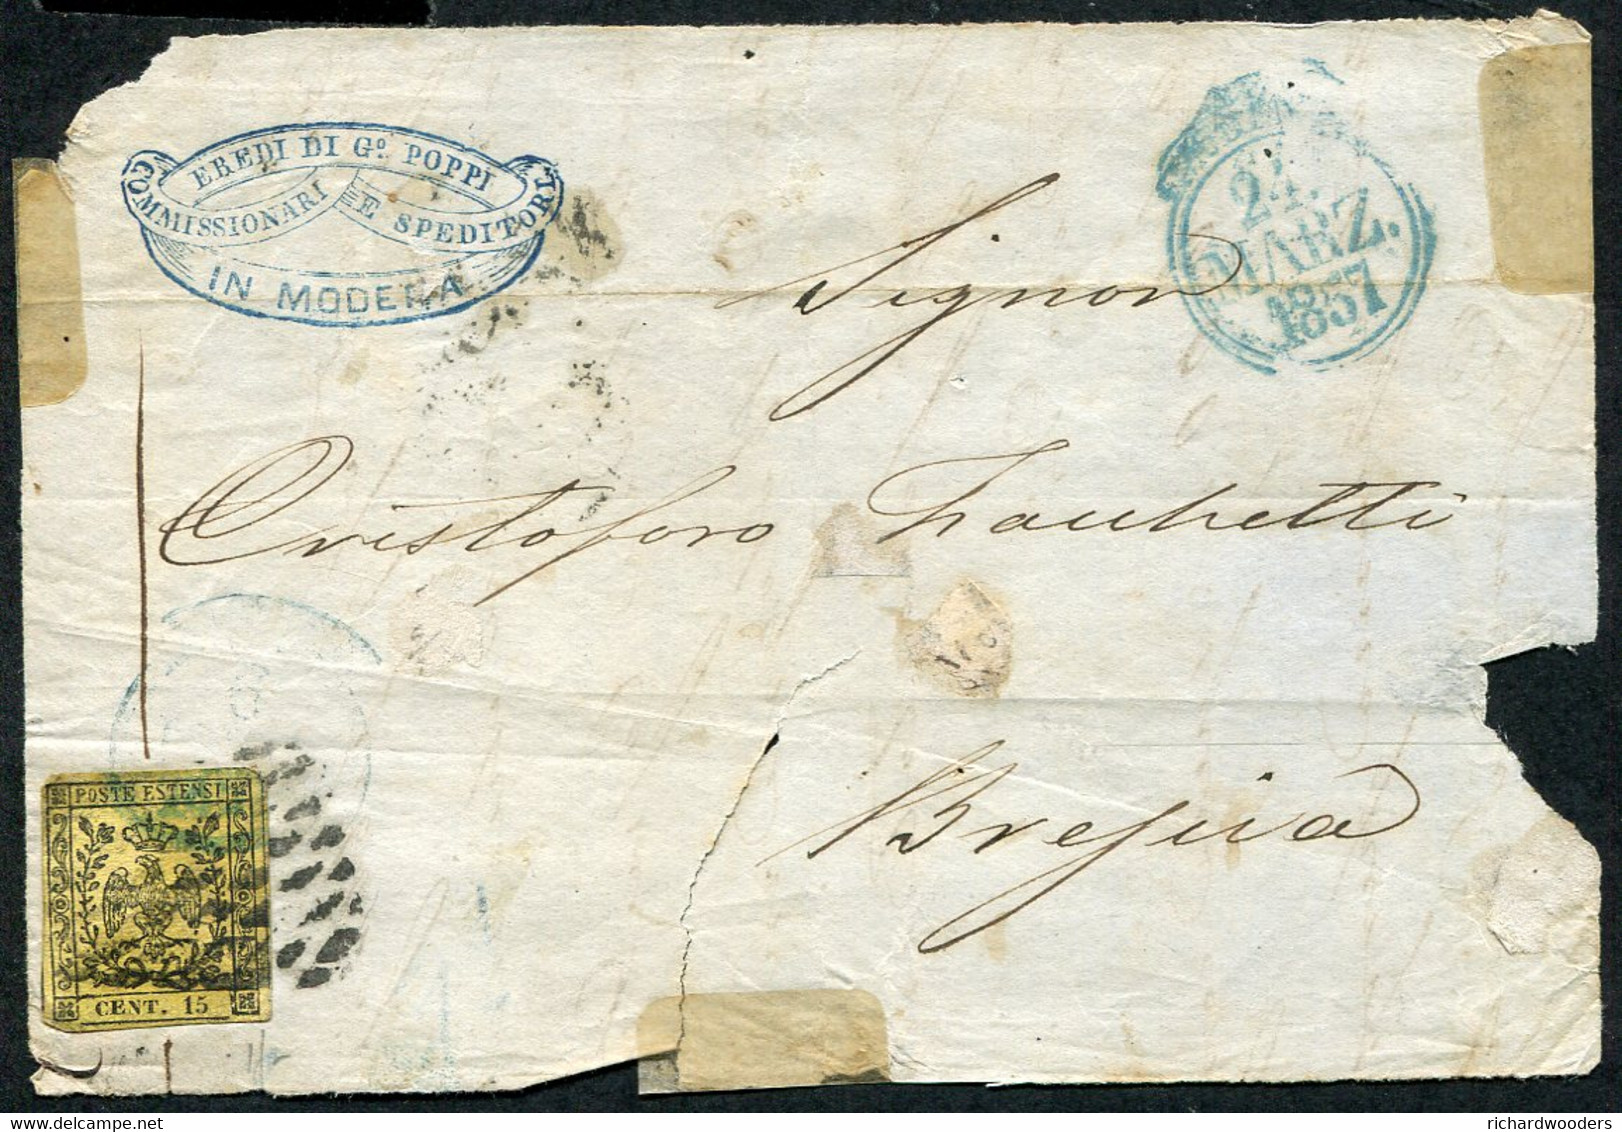 EREDI DI Gº. POPPI
COMMISSIONARI E SPEDITORI
IN MODENA
24.
MARZ.
1857
Signor
Cristoforo Franchetti
Brescia
POSTE ESTENSI
CENT. 15
richardwooders